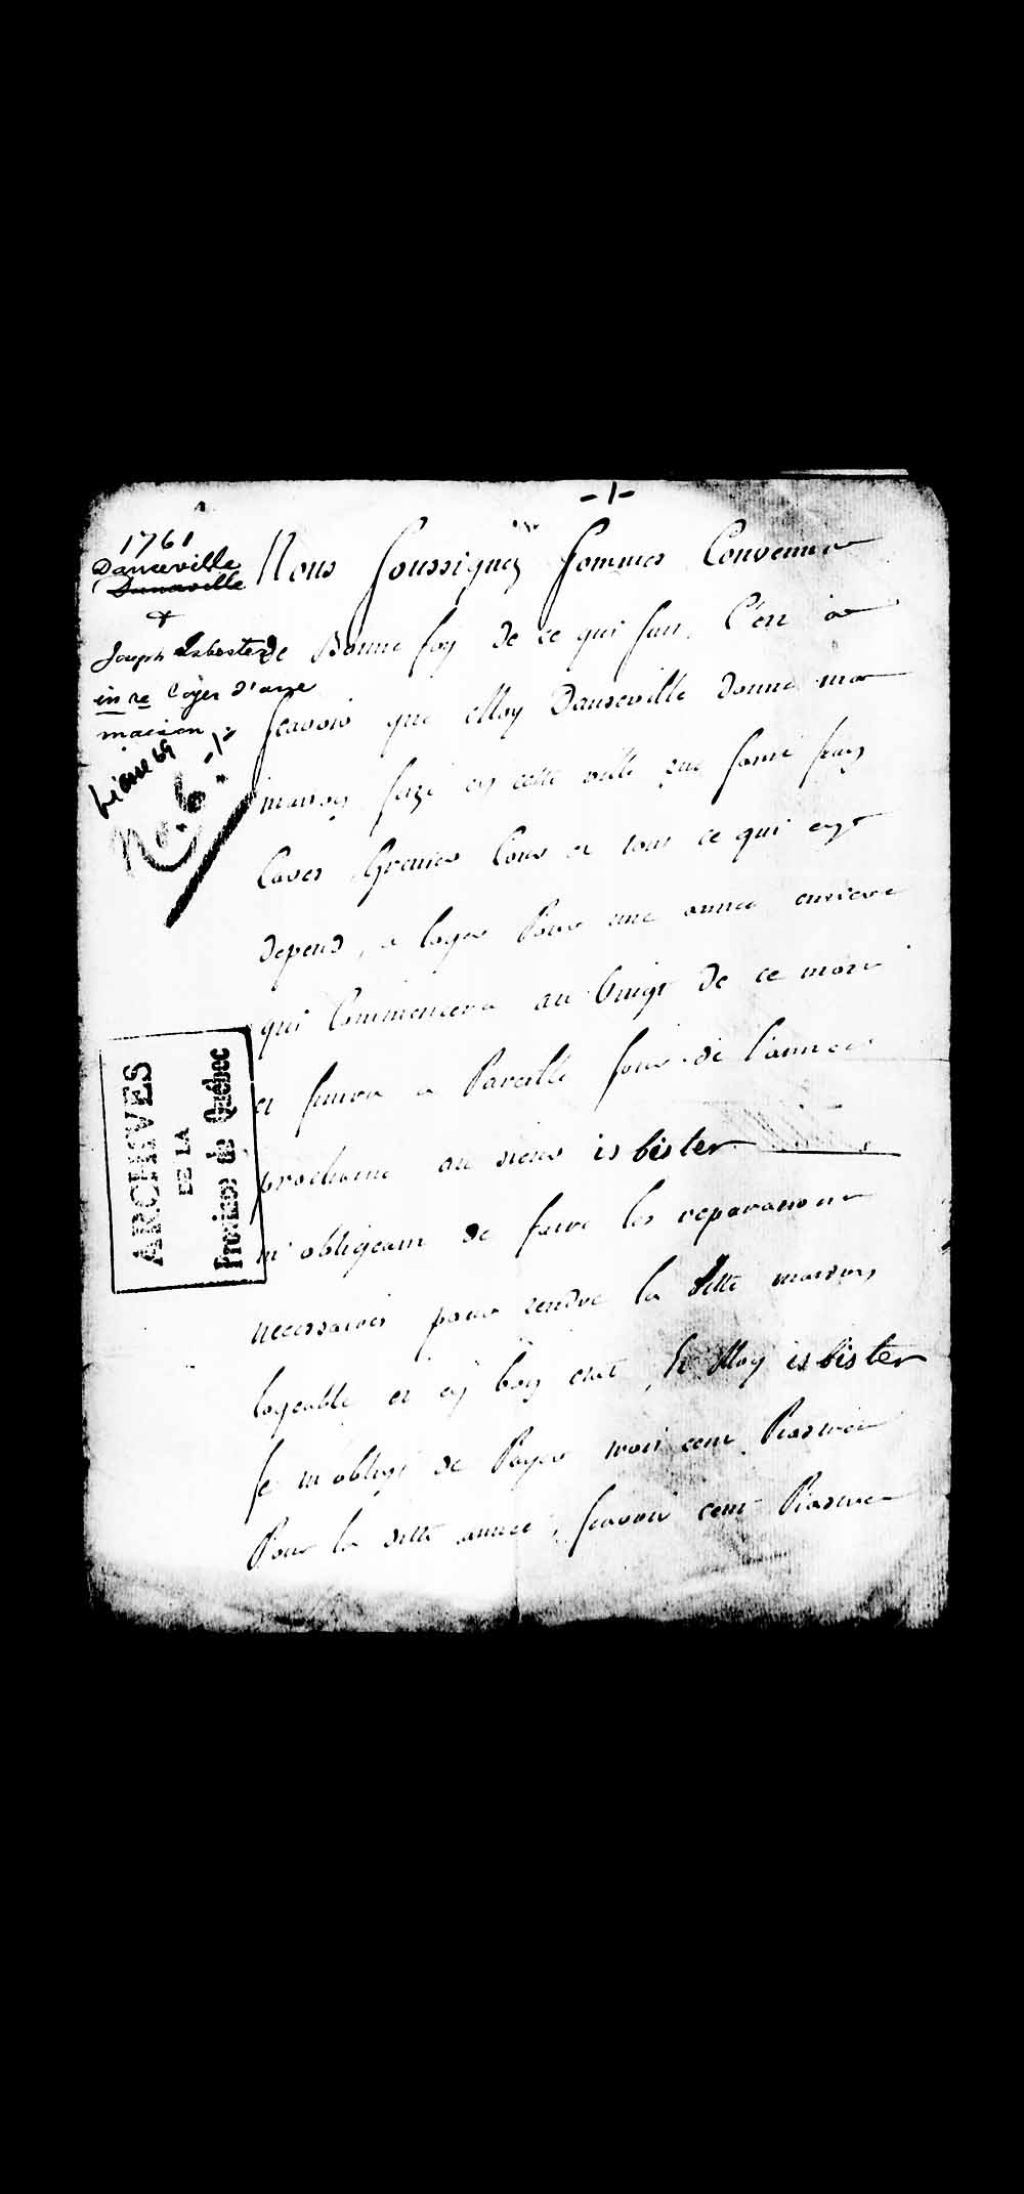 -1-
1761
Danceville
Danaville
&
Joseph Isbester
in re loyer d'une
maison
Liasse 69
No. 6
Nous Soussignez Sommes Convenue
de Bonne foy de ce qui suit. C'est a
scavoir que Moy Danseville donne ma
maison size en cette ville rue Saint
Caves Grenier Cour et tous ce qui en
depend, a loyer Pour une année entiere
qui Commencera au Vingt de ce mois
et finira a Pareille jour de l'année
prochaine au sieur isbister
m'obligeant de faire les reparations
necessaires pour rendre la ditte maison
logeable et en bon etat, & Moy isbister
Je m'oblige de Payer trois cent Piastres
Pour la ditte année, scavoir cent Piastres
ARCHIVES
DE LA
Province de Québec